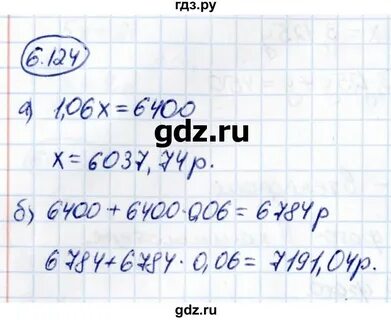 гдз.ру
6.124
а) 1,06x = 6400
gdz.ru
x = 6037,74 р.
б) 6400 + 6400·0,06 = 6784 р
6784 + 6784 · 0,06 = 7191,04 р.
gdz.ru